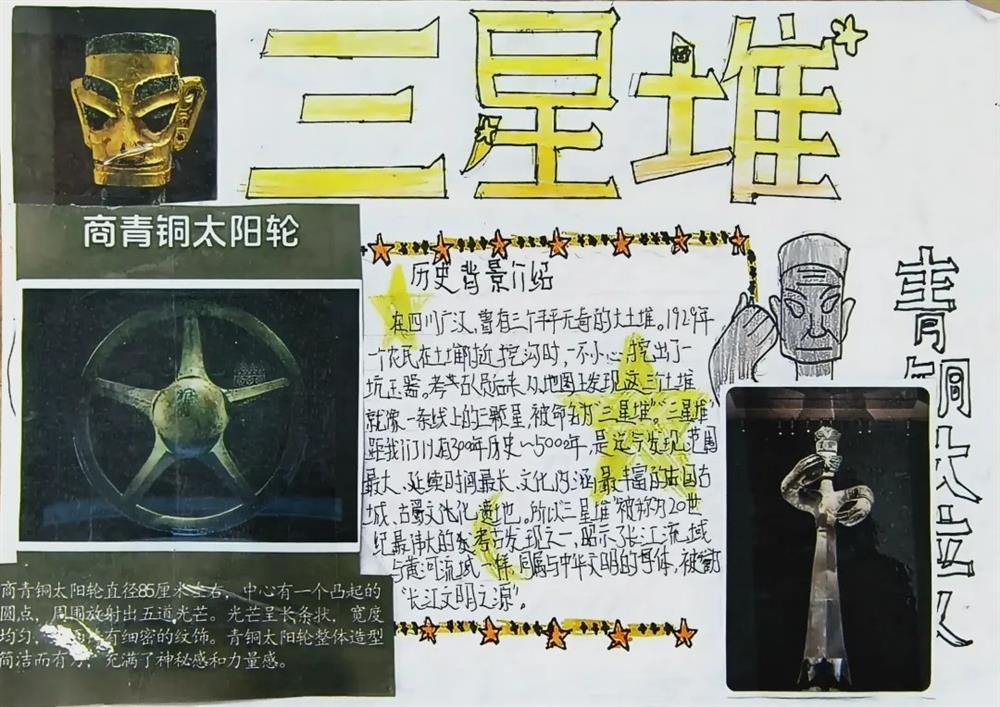 三星堆
商青铜太阳轮
历史背景介绍
在四川广汉,曾有三个平平无奇的大土堆。1929年
一个农民在土堆附近挖沟时,一不小心,挖出了一
坑玉器。考古人员后来从地图上发现这三个土堆
就像一条线上的三颗星,被命名为"三星堆"。"三星堆"
距我们有300年历史~5000年,是迄今发现范围
最大、延续时间最长、文化内涵最丰富的古国古
城、古蜀文化遗址。所以三星堆"被称为20世
纪最伟大的考古发现之一,昭示了长江流域
与黄河流域一样,同属与中华文明的母体,被
"长江文明之源"。
商青铜太阳轮直径85厘米左右,中心有一个凸起的
圆点,周围放射出五道光芒。光芒呈长条状,宽度
均匀,有细密的纹饰。青铜太阳轮整体造型
简洁而有力,充满了神秘感和力量感。
青铜大立人